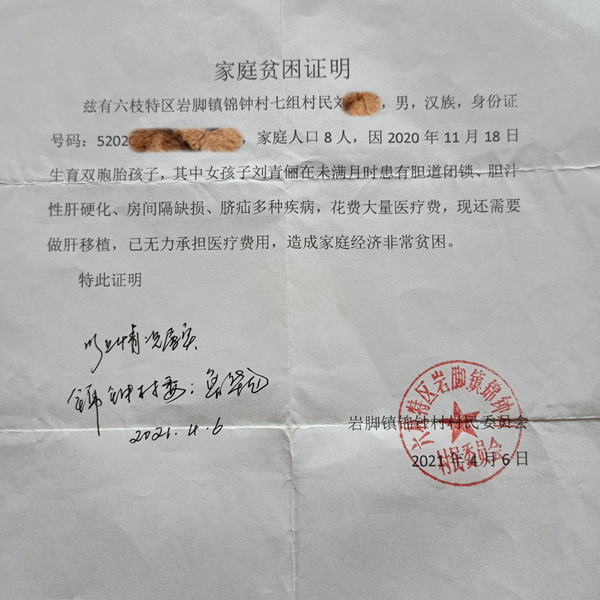 家庭贫困证明
兹有六枝特区岩脚镇锦钟村七组村民刘，男，汉族，身份证
号码：5202，家庭人口8人，因2020年11月18日
生育双胞胎孩子，其中女孩子刘青俪在未满月时患有胆道闭锁、胆汁
性肝硬化、房间隔缺损、脐疝多种疾病，花费大量医疗费，现还需要
做肝移植，已无力承担医疗费用，造成家庭经济非常贫困。
特此证明
以上情况属实
锦钟村委：
2021.4.6
岩脚镇锦钟村村民委员会
2021年4月6日
六枝特区岩脚镇锦钟
村民委员会